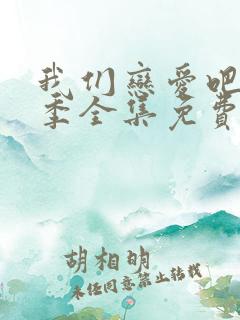 我们戀爱吧
季全集免費
胡相明
未经同意禁止转载